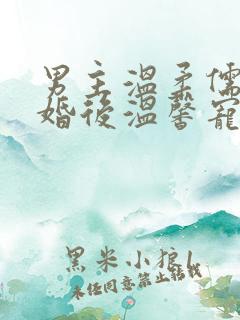 男主温柔儒
婚后温馨宠
黑米小狼1
未经同意禁止转载